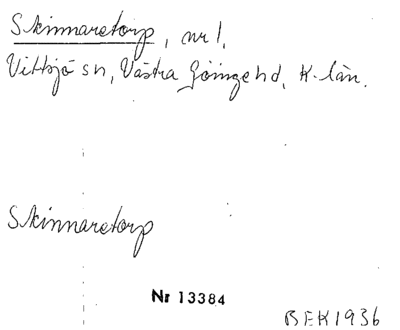 Skinnaretorp, nr 1,
Vittsjö sn, Västra Göinge hd, K-län.
Skinnaretorp
Nr 13384
BEK 1936